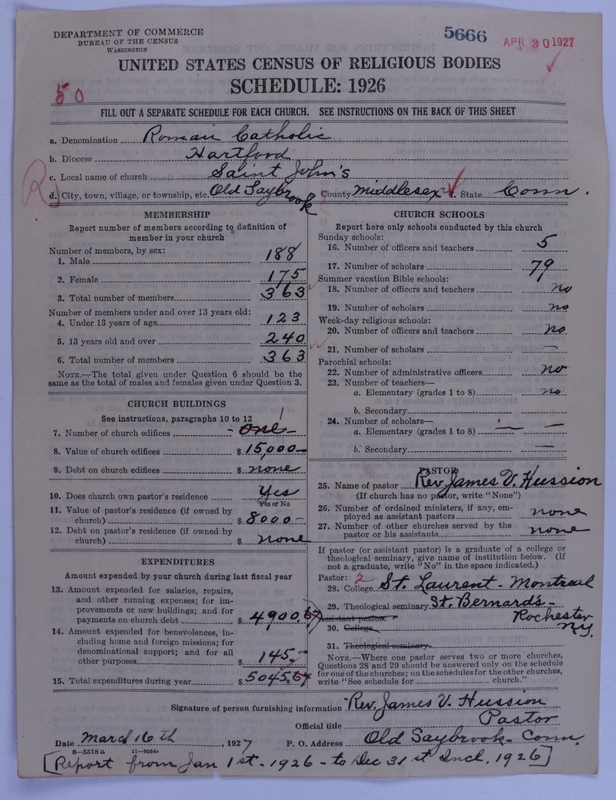 DEPARTMENT OF COMMERCE
BUREAU OF THE CENSUS
WASHINGTON
5666
APR 30 1927
UNITED STATES CENSUS OF RELIGIOUS BODIES
SCHEDULE: 1926
50
FILL OUT A SEPARATE SCHEDULE FOR EACH CHURCH. SEE INSTRUCTIONS ON THE BACK OF THIS SHEET
a. Denomination Roman Catholic
b. Diocese Hartford
c. Local name of church Saint John's
R
d. City, town, village, or township, etc. Old Saybrook County Middlesex State Conn.
MEMBERSHIP
Report number of members according to definition of
member in your church
Number of members, by sex:
1. Male 188
2. Female 175
3. Total number of members 363
Number of members under and over 13 years old:
4. Under 13 years of age 123
5. 13 years old and over 240
6. Total number of members 363
NOTE.—The total given under Question 6 should be the
same as the total of males and females given under Question 3.
CHURCH BUILDINGS
See instructions, paragraphs 10 to 12
7. Number of church edifices - one - 1
8. Value of church edifices $ 15,000—
9. Debt on church edifices $ none
10. Does church own pastor's residence Yes
Yes or No
11. Value of pastor's residence (if owned by
church) $ 8000.-
12. Debt on pastor's residence (if owned by
church) $ none
EXPENDITURES
Amount expended by your church during last fiscal year
13. Amount expended for salaries, repairs,
and other running expenses; for im-
provements or new buildings; and for
payments on church debt $ 4900.67
14. Amount expended for benevolences, in-
cluding home and foreign missions; for
denominational support; and for all
other purposes $ 145.-
15. Total expenditures during year $ 5045.67
CHURCH SCHOOLS
Report here only schools conducted by this church
Sunday schools:
16. Number of officers and teachers 5
17. Number of scholars 79
Summer vacation Bible schools:
18. Number of officers and teachers no
19. Number of scholars no
Week-day religious schools:
20. Number of officers and teachers no
21. Number of scholars —
Parochial schools:
22. Number of administrative officers no
23. Number of teachers—
a. Elementary (grades 1 to 8) no
b. Secondary —
24. Number of scholars—
a. Elementary (grades 1 to 8) — —
b. Secondary —
PASTOR
25. Name of pastor Rev. James V. Hussion
(If church has no pastor, write "None")
26. Number of ordained ministers, if any, em-
ployed as assistant pastors none
27. Number of other churches served by the
pastor or his assistants none
If pastor (or assistant pastor) is a graduate of a college or
theological seminary, give name of institution below. (If
not a graduate, write "No" in the space indicated.)
Pastor: 2
28. College St. Laurent - Montreal
29. Theological seminary St. Bernard's -
Rochester
N.Y.
Assistant pastor:
30. College
31. Theological seminary
NOTE.—Where one pastor serves two or more churches,
Questions 28 and 29 should be answered only on the schedule
for one of the churches; on the schedules for the other churches,
write "See schedule for ........ church."
Signature of person furnishing information Rev. James V. Hussion
Official title Pastor
Date March 16th, 1927 P. O. Address Old Saybrook - Conn.
[Report from Jan 1st - 1926 - to Dec 31st Incl. 1926]